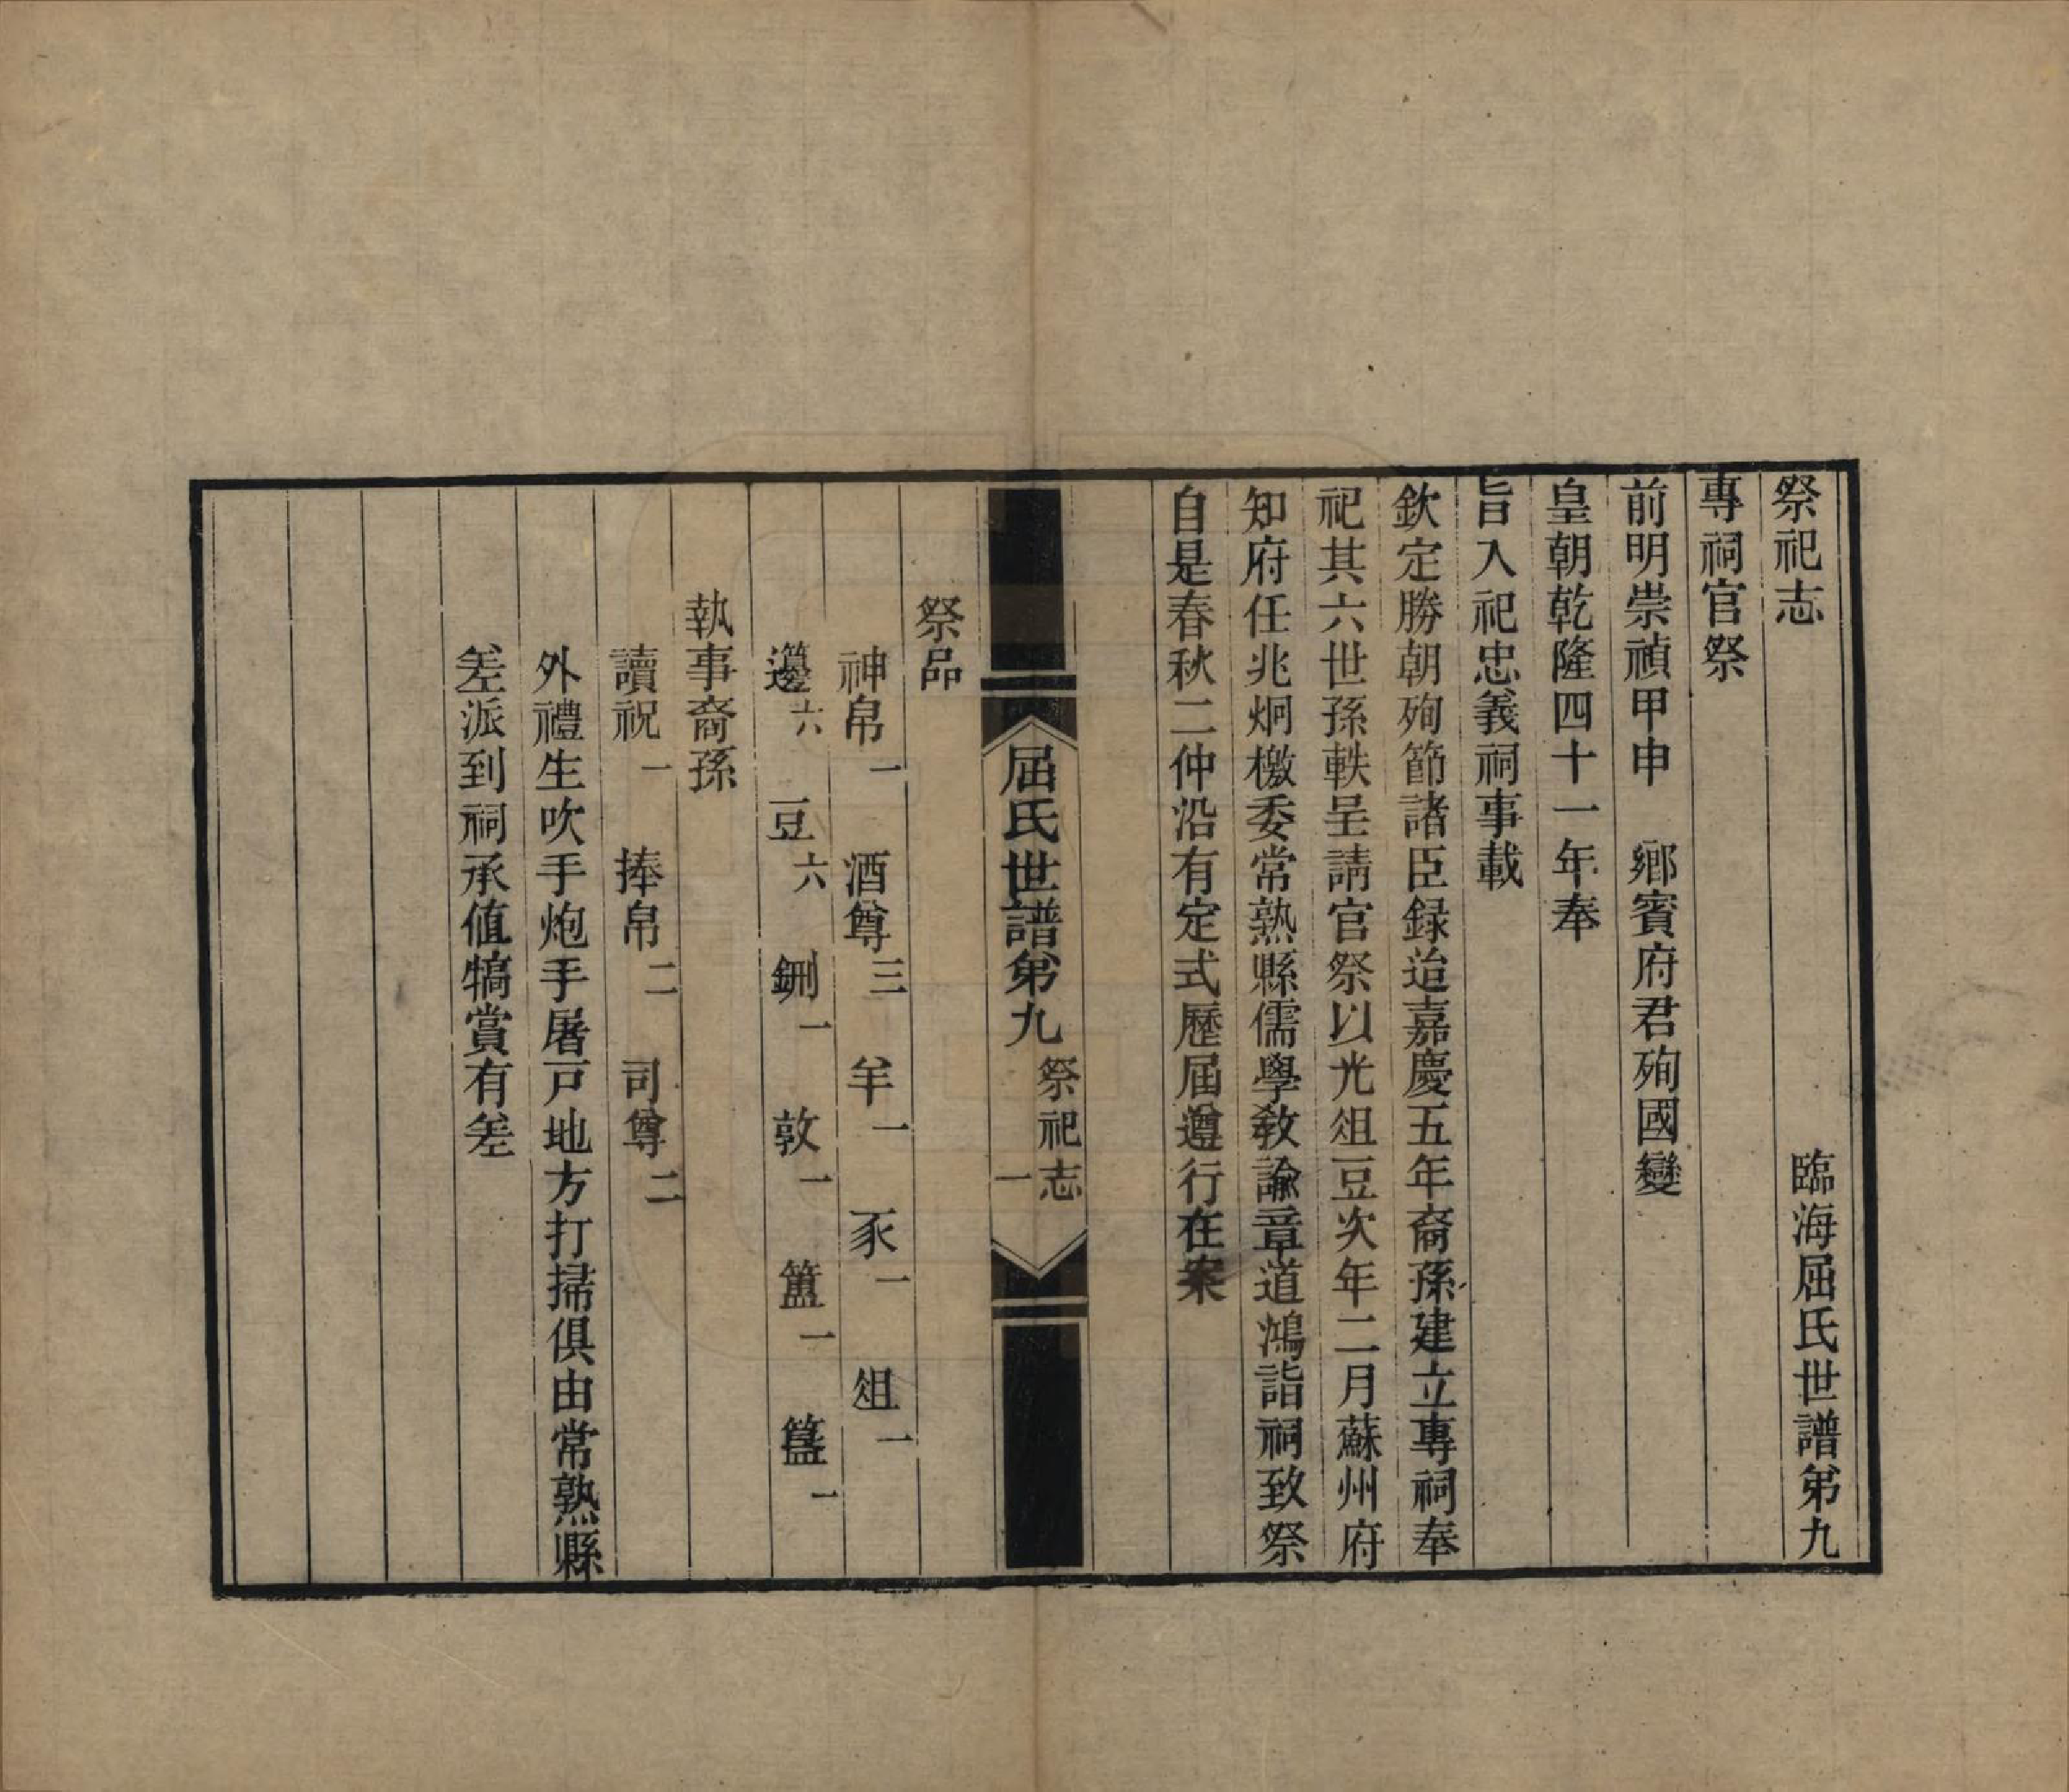 祭祀志　臨海屈氏世譜第九
專祠官祭
前明崇禎甲申　鄉賓府君殉國變
皇朝乾隆四十一年奉
旨入祀忠義祠事載
欽定勝朝殉節諸臣録迨嘉慶五年裔孫建立專祠奉
祀其六世孫軼呈請官祭以光俎豆次年二月蘇州府
知府任兆炯檄委常熟縣儒學敎諭章道鴻詣祠致祭
自是春秋二仲沿有定式歷屆遵行在案
屈氏世譜第九　祭祀志　一
祭品
神帛一　酒尊三　羊一　豕一　俎一
籩六　豆六　鉶一　敦一　簠一　簋一
執事裔孫
讀祝一　捧帛二　司尊二
外禮生吹手炮手屠戸地方打掃俱由常熟縣
差派到祠承值犒賞有差